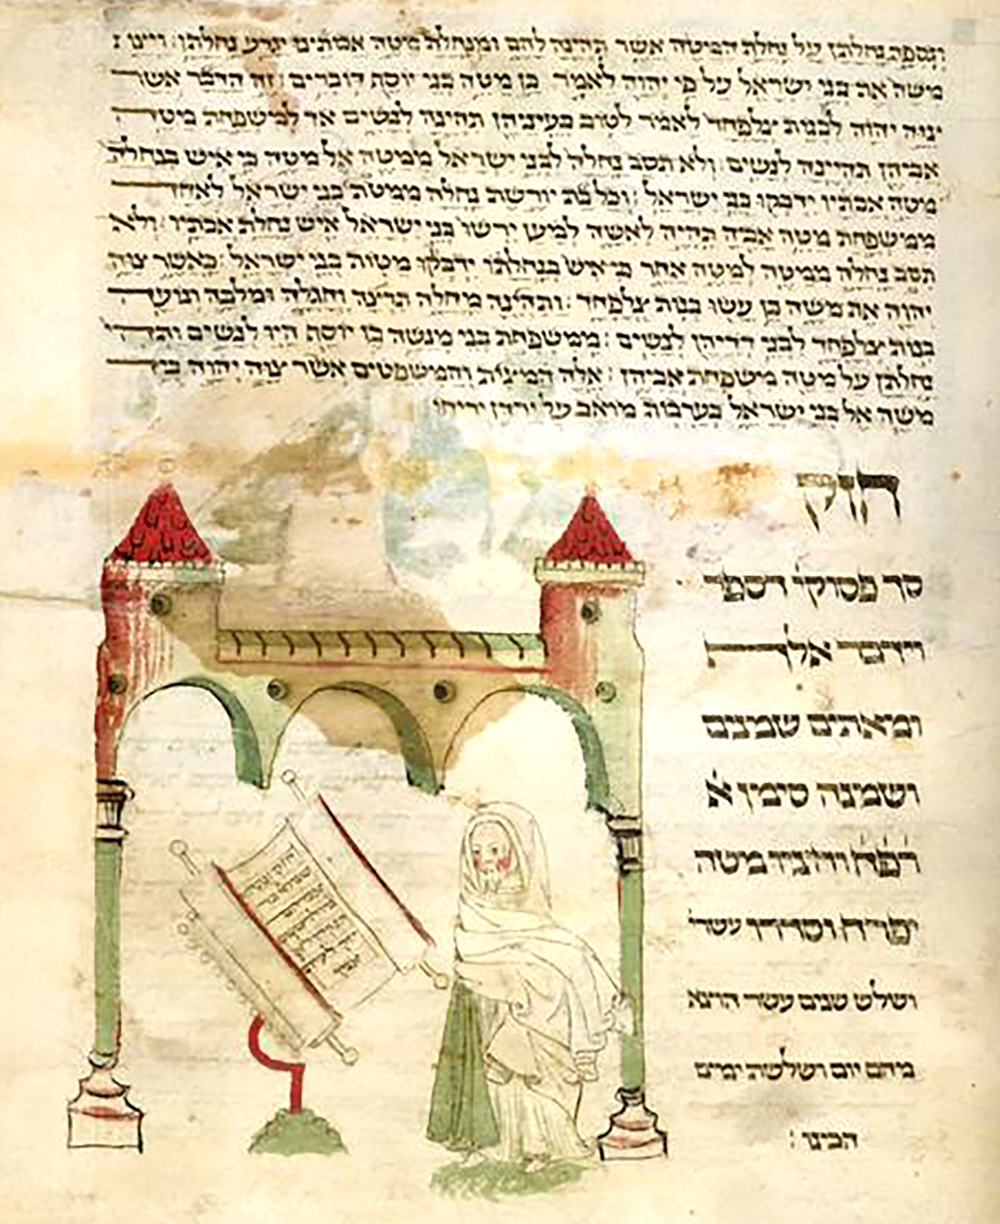 ונוספה נחלתן על נחלת המטה אשר תהיינה להם ומנחלת מטה אבותינו יגרע נחלתן ויצו
משה את בני ישראל על פי יהוה לאמר כן מטה בני יוסף דוברים זה הדבר אשר
צוה יהוה לבנות צלפחד לאמר לטוב בעיניהן תהיינה לנשים אך למשפחת מטה
אביהן תהיינה לנשים ולא תסב נחלה לבני ישראל ממטה אל מטה כי איש בנחלת
מטה אבתיו ידבקו בני ישראל וכל בת יורשת נחלה ממטות בני ישראל לאחד
ממשפחת מטה אביה תהיה לאשה למען ירשו בני ישראל איש נחלת אבתיו ולא
תסב נחלה ממטה למטה אחר כי איש בנחלתו ידבקו מטות בני ישראל כאשר צוה
יהוה את משה כן עשו בנות צלפחד ותהיינה מחלה תרצה וחגלה ומלכה ונועה
בנות צלפחד לבני דדיהן לנשים ממשפחת בני מנשה בן יוסף היו לנשים ותהי
נחלתן על מטה משפחת אביהן אלה המצות והמשפטים אשר צוה יהוה ביד
משה אל בני ישראל בערבות מואב על ירדן ירחו
חזק
סך פסוקי דספר
וידבר אלף
ומאתים שמנים
ושמנה סימן א
רפח מטה
וסדריו עשר
ושלש שנים עשר הוצא
מהם יום ושלשה ימים
הבינו